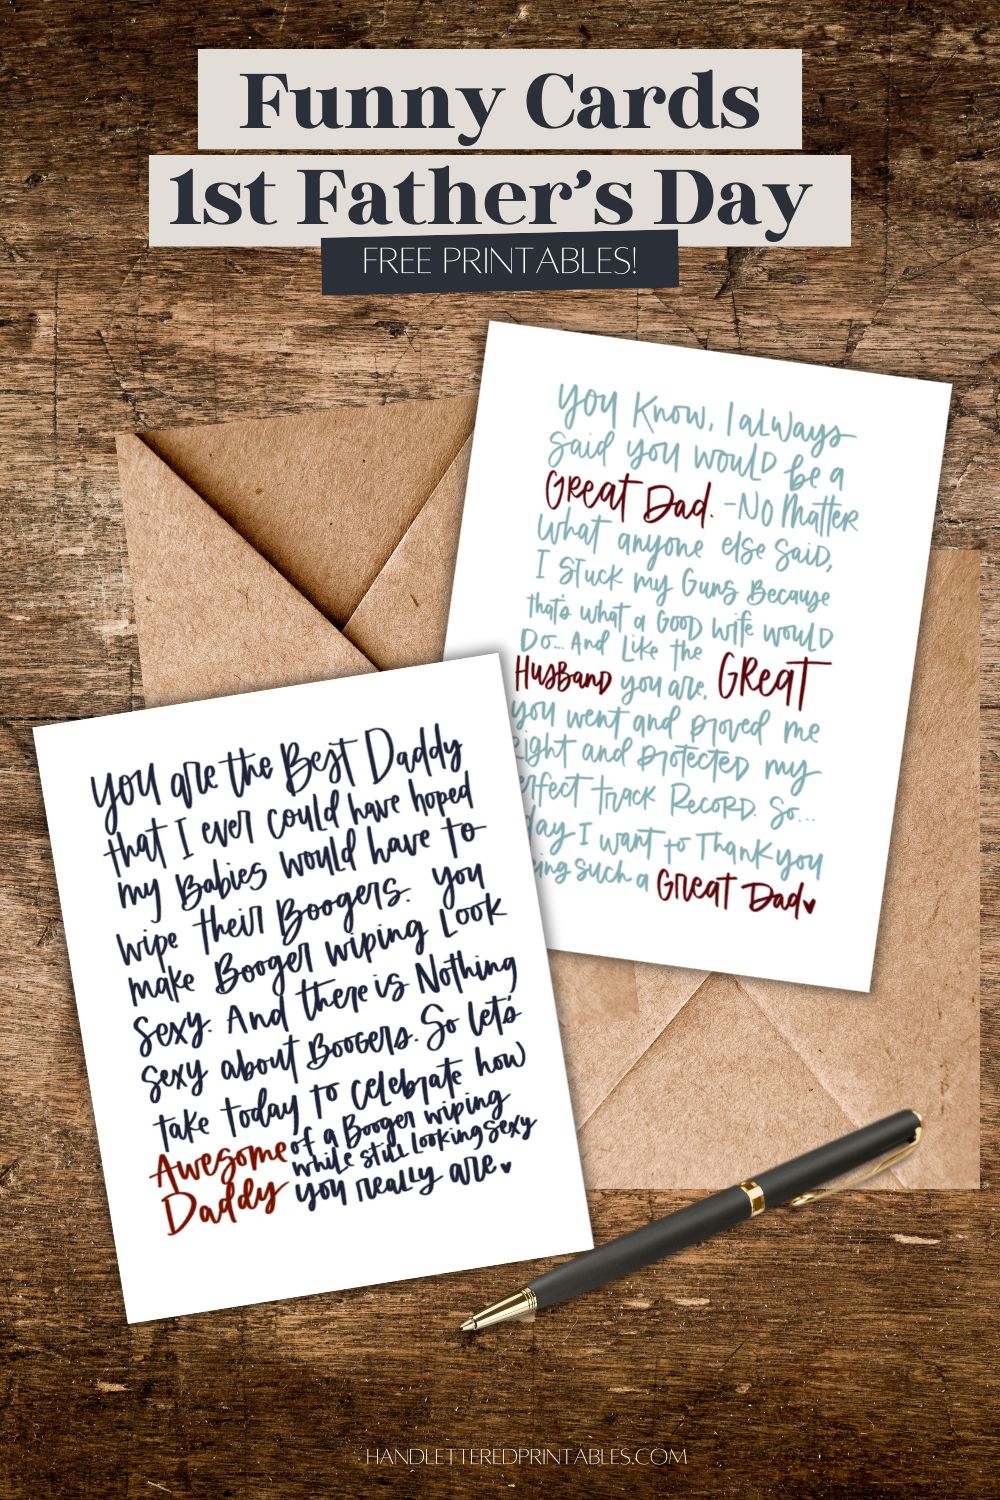 Funny Cards
1st Father's Day
FREE PRINTABLES!
You Know, I always
said you would be a
Great Dad. -No Matter
what anyone else said,
I stuck my Guns Because
that's what a Good wife would
Do... And Like the
Husband you are, GREAT
you went and proved me
right and protected my
erfect track Record. So...
day I want to Thank you
ing such a Great Dad
You are the Best Daddy
that I ever could have hoped
my Babies would have to
wipe their Boogers. You
make Booger wiping Look
Sexy. And there is Nothing
sexy about Boogers. So let's
take today to celebrate how
Awesome of a Booger wiping
while still looking sexy
Daddy you really are.
HANDLETTEREDPRINTABLES.COM